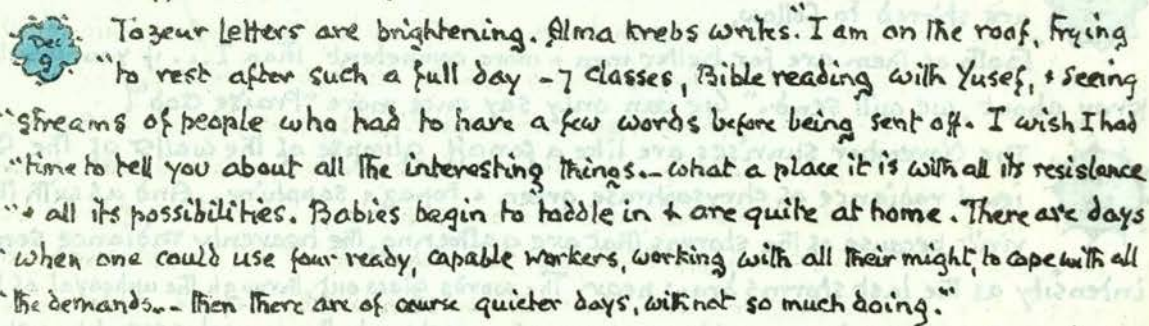 Dec 9 Tozeur letters are brightening. Alma Krebs writes. "I am on the roof, trying
"to rest after such a full day - 7 classes, Bible reading with Yusef, & seeing
"streams of people who had to have a few words before being sent off. I wish I had
"time to tell you about all the interesting things.. what a place it is with all its resistance
"& all its possibilities. Babies begin to toddle in & are quite at home. There are days
"when one could use four ready, capable workers, working with all their might, to cope with all
"the demands.. then there are of course quieter days, with not so much doing."